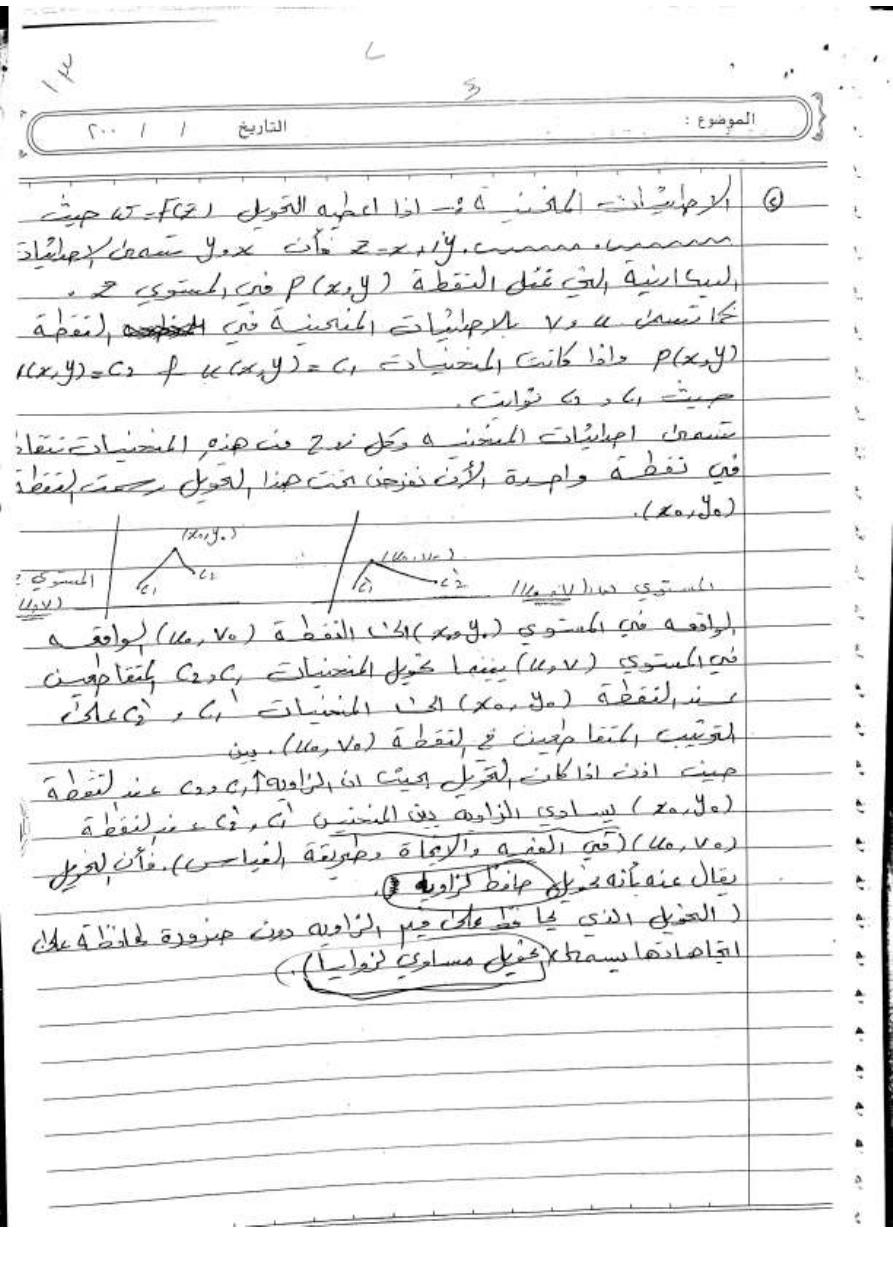 ١٣
الموضوع :
التاريخ / / ٢٠٠
② الاحداثيات المنحنية :- اذا اعطيه التحويل w=f(z) حيث
z=x+iy فأن x و y تسمى الاحداثيات
البيكارتية التي تمثل النقطة P(x,y) في المستوي z .
كما تسمى u و v بالاحداثيات المنحنية في النقطة
P(x,y) واذا كانت المنحنيات u(x,y)=c₁ و v(x,y)=c₂
حيث c₁ و c₂ ثوابت .
تسمى احداثيات المنحنيه وكل زوج من هذه المنحنيات تتقاط
في نقطة واحدة الأن نفرض تحت هذا التحويل رسمت النقطة
(x₀,y₀).
(x₀,y₀)
c₁ c₂
(u₀,v₀)
c₁' c₂'
المستوي :
(u,v)
المستوي w (u₀,v₀)
الواقعه في المستوي (x₀,y₀) الى النقطة (u₀,v₀) الواقعه
في المستوي (u,v) بينما تحول المنحنيات c₁ و c₂ المتقاطعين
عند النقطة (x₀,y₀) الى المنحنيات c₁' و c₂' على
الترتيب المتقاطعين في النقطة (u₀,v₀).
بين
حيث اذن اذا كان التحويل بحيث ان الزاويه c₁ و c₂ عند النقطة
(x₀,y₀) يساوي الزاويه بين المنحنين c₁' و c₂' عند النقطة
(u₀,v₀) (في القيمه والاتجاة وطريقة القياس). فأن التحويل
يقال عنه بأنه تحويل حافظ لزاويه .
( التحويل الذي يحافظ على قيم الزاويه دون ضرورة لمحافظة على
اتجاهاتها يسمى (تحويل مساوي لزوايا).)